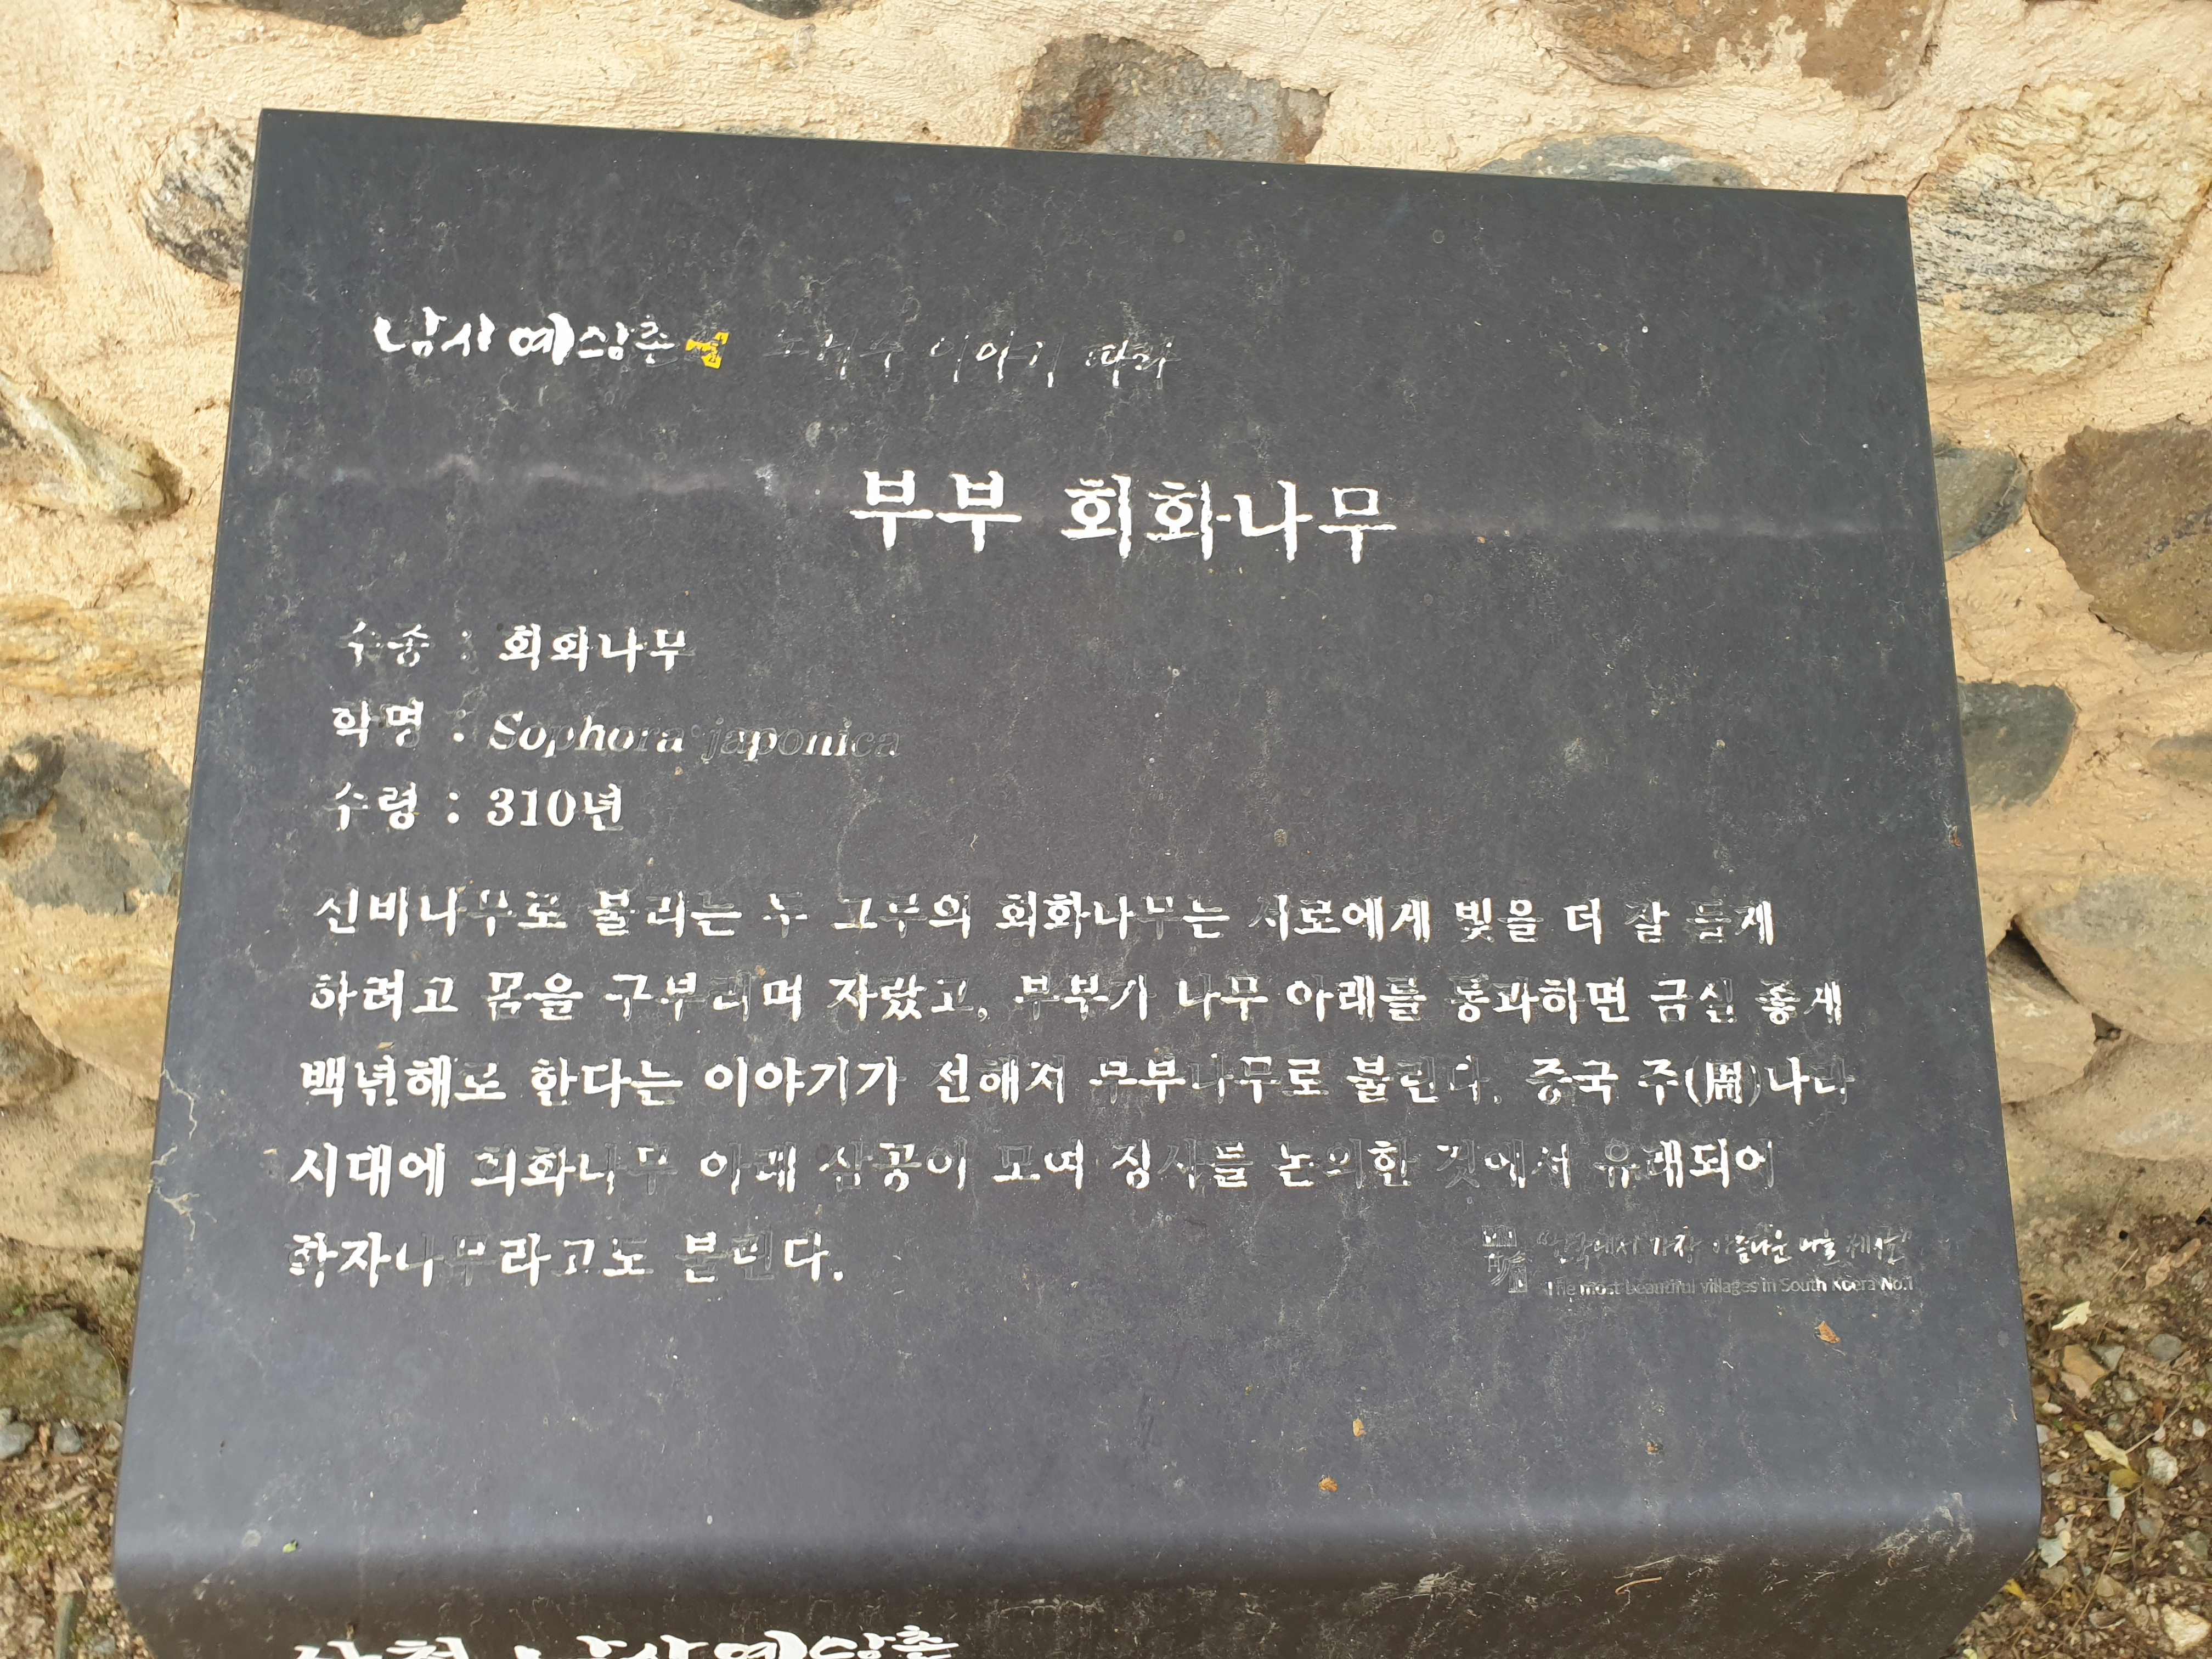 남사예담촌 이야기 따라
부부 회화나무
수종 : 회화나무
학명 : Sophora japonica
수령 : 310년
선비나무로 불리는 두 그루의 회화나무는 서로에게 빛을 더 잘 들게
하려고 몸을 구부리며 자랐고, 부부가 나무 아래를 통과하면 금실 좋게
백년해로 한다는 이야기가 전해져 부부나무로 불린다. 중국 주(周)나라
시대에 회화나무 아래 삼공이 모여 정사를 논의한 것에서 유래되어
학자나무라고도 불린다.
가장 아름다운 마을
The most beautiful villages in South Koera No.1
남사예담촌